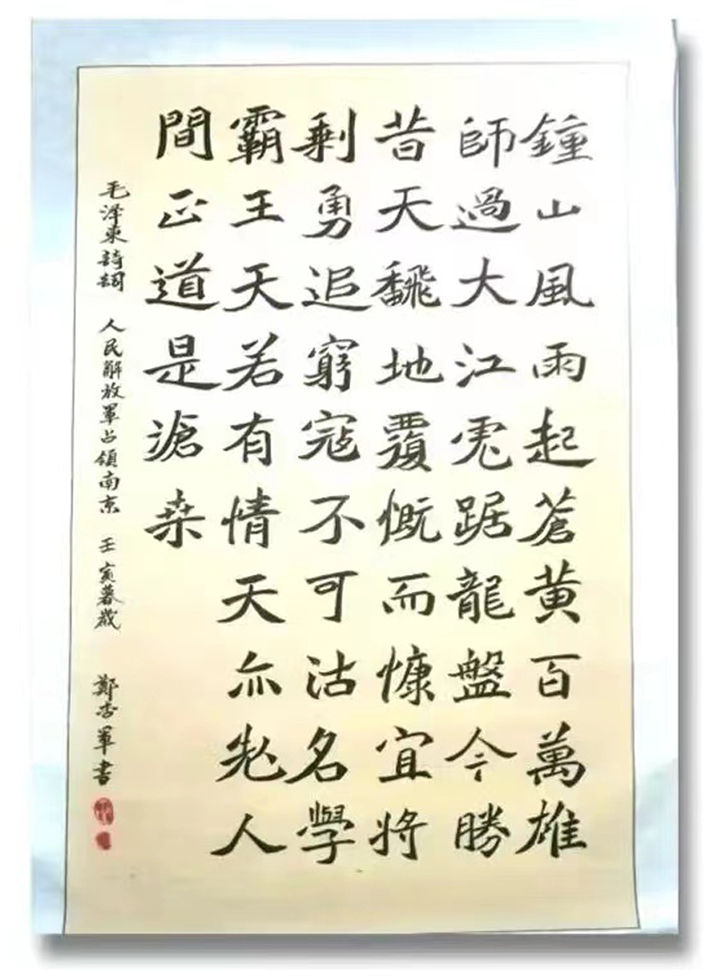 鍾山風雨起蒼黄百萬雄
師過大江虎踞龍盤今勝
昔天飜地覆慨而慷宜將
剩勇追窮寇不可沽名學
霸王天若有情天亦老人
間正道是滄桒
毛泽東詩詞 人民解放軍占領南京 壬寅暮歲 鄭杏軍書